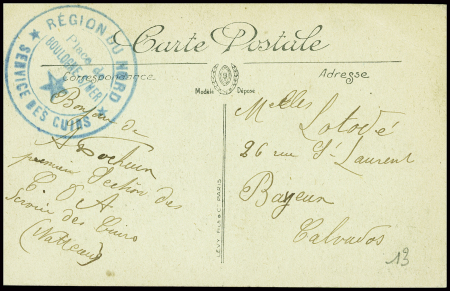 RÉGION DU NORD
Place de
BOULOGNE S/MER
SERVICE DES CUIRS
Carte Postale
Correspondance
Adresse
Modèle Déposé
Bonjour de
A
première Section des
C O A
Service des Cuirs
LEVY FILS & Cie PARIS
Melles
26 rue St Laurent
Bayeux
Calvados
13